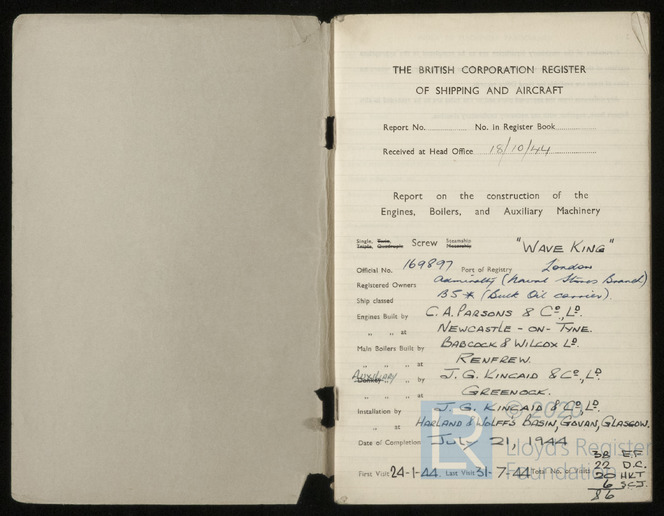 THE BRITISH CORPORATION REGISTER
OF SHIPPING AND AIRCRAFT
Report No. No. in Register Book
Received at Head Office 18/10/44
Report on the construction of the
Engines, Boilers, and Auxiliary Machinery
Single, Twin, Triple, Quadruple Screw Steamship Motorship "WAVE KING"
Official No. 169897 Port of Registry London
Registered Owners Admiralty (Naval Stores Branch)
Ship classed BS* (Bulk Oil carrier).
Engines Built by C. A. PARSONS & Co., LD.
" " at NEWCASTLE-ON-TYNE.
Main Boilers Built by BABCOCK & WILCOX LD.
" " at RENFREW.
AUXILIARY Donkey " " by J. G. KINCAID & Co., LD.
" " at GREENOCK.
Installation by J. G. KINCAID & Co., LD.
" at HARLAND & WOLFF'S BASIN, GOVAN, GLASGOW.
Date of Completion JULY 21, 1944
First Visit 24-1-44 Last Visit 31-7-44 Total No. of Visits
38 E.F.
22 D.C.
20 H.K.T.
6 S.C.J.
86
© 2020
LR
Lloyd's Register
Foundation